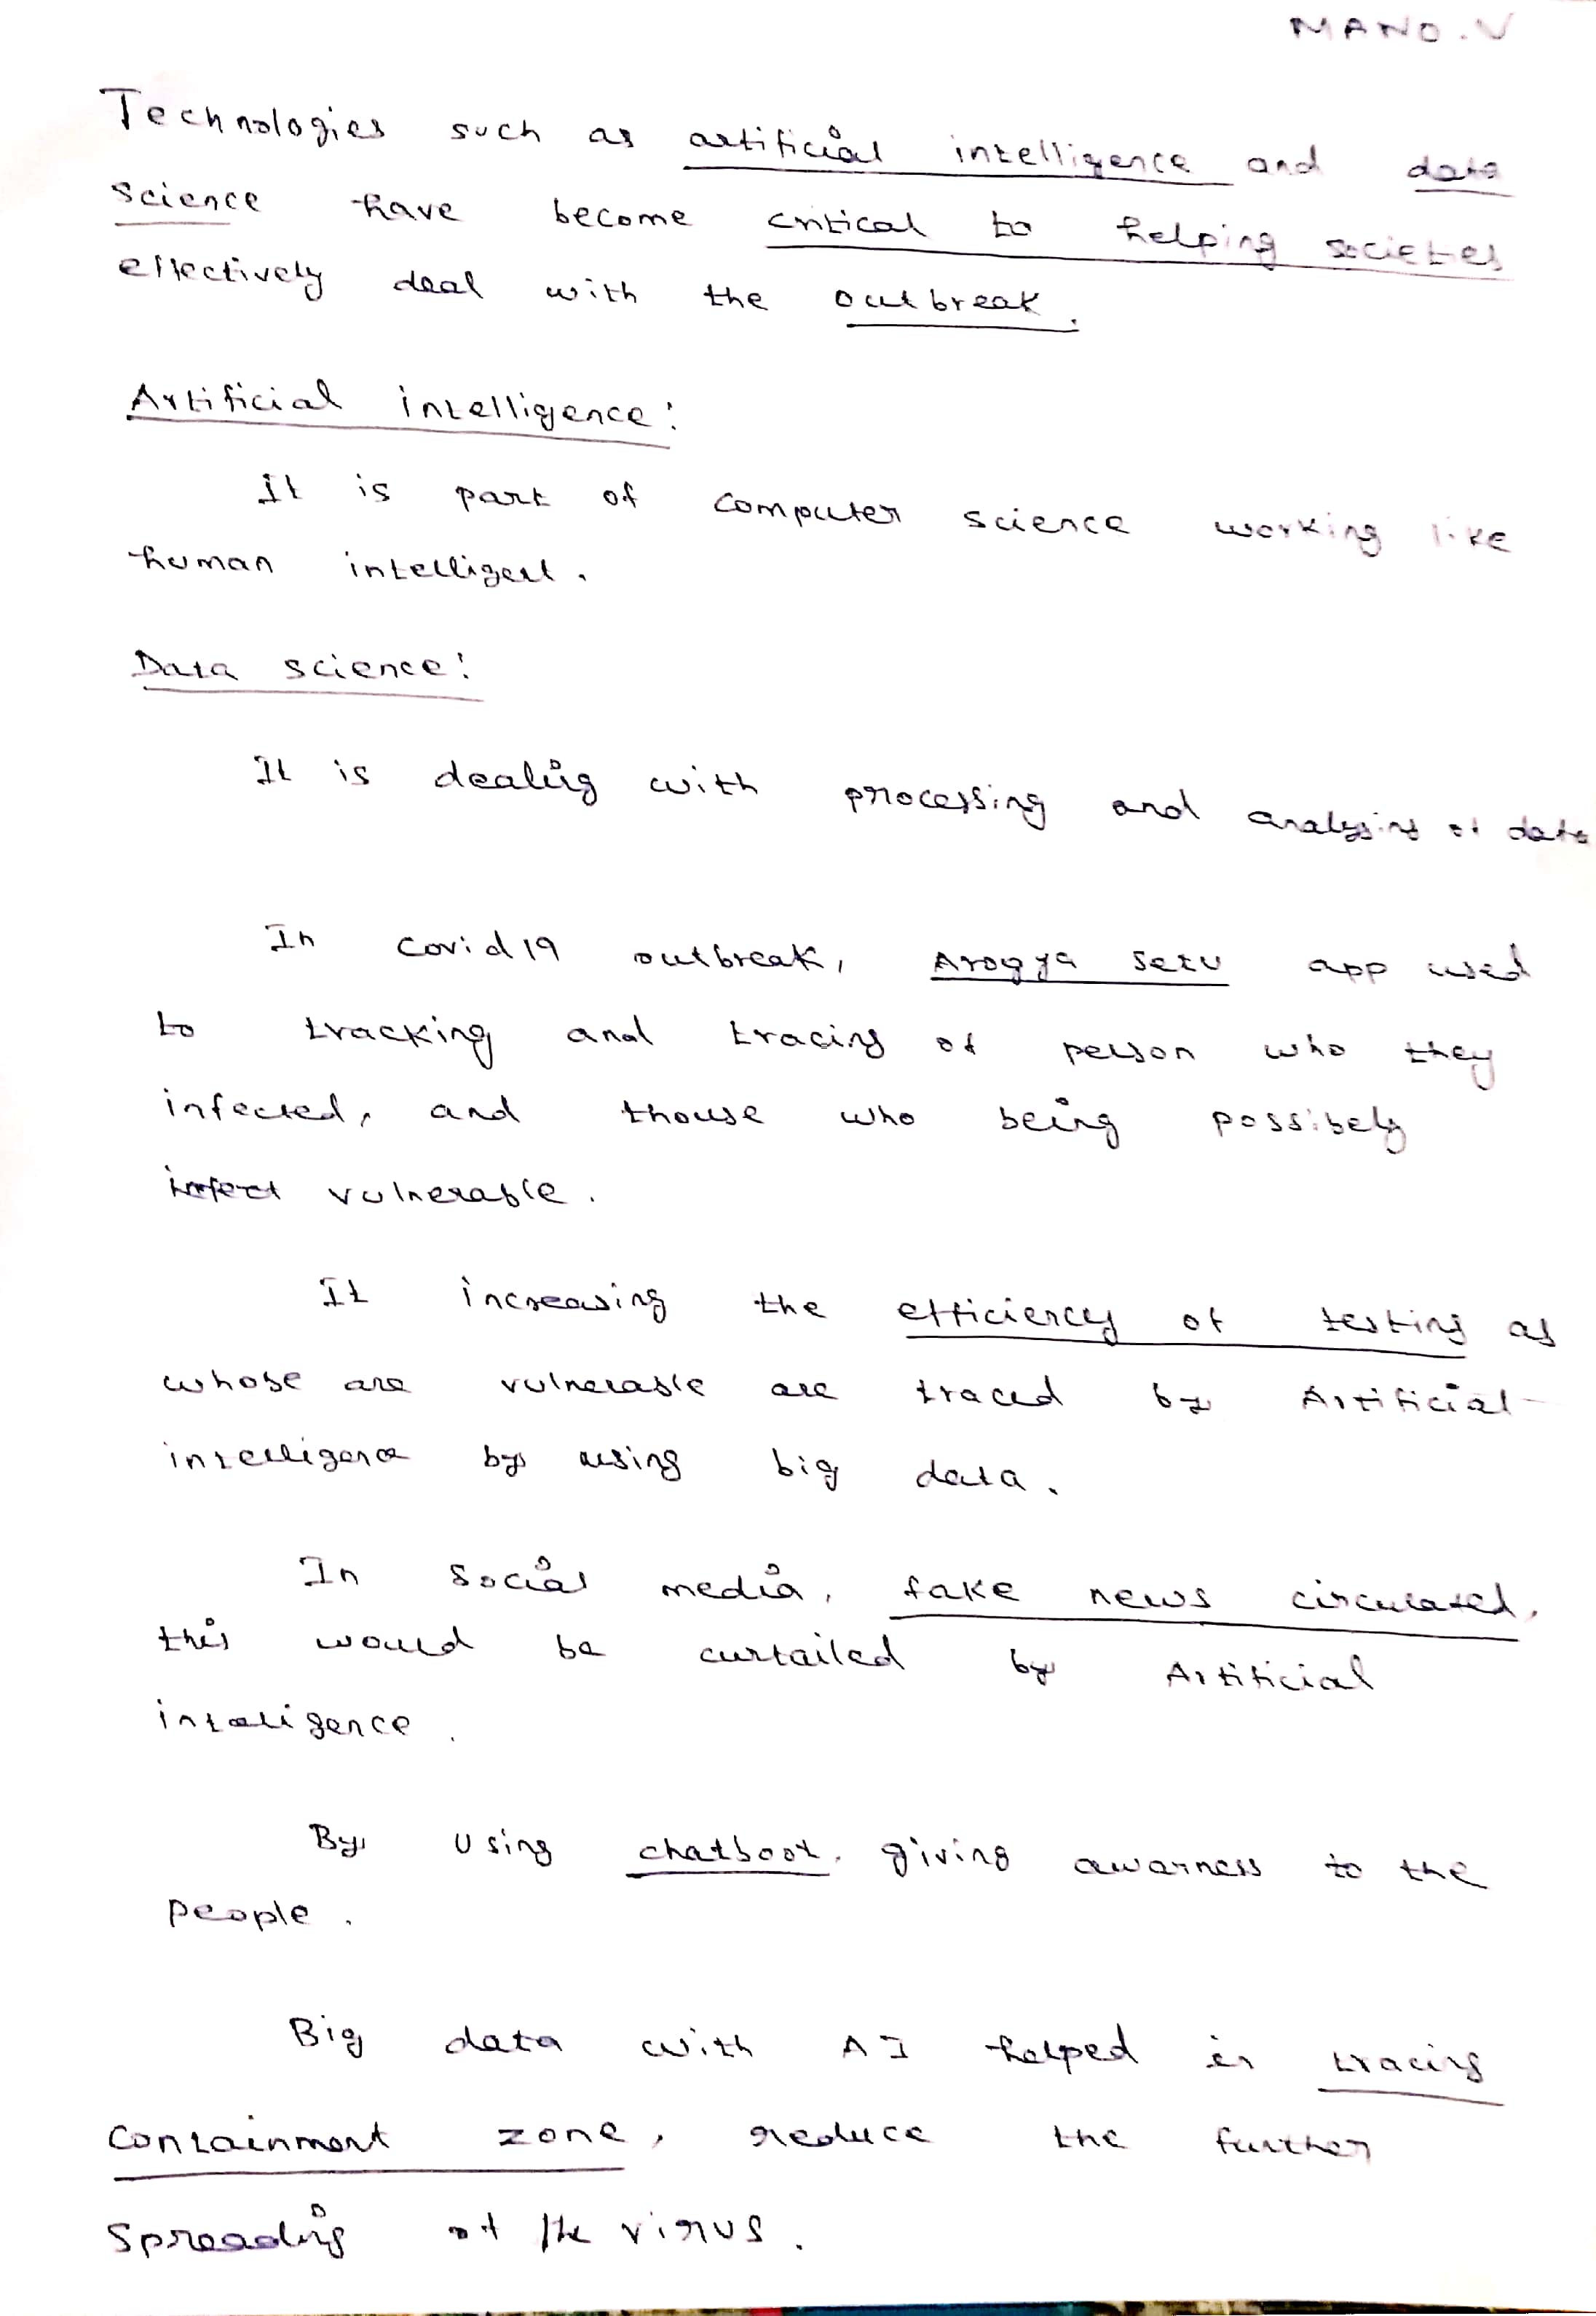 MANO.V
Technologies such as artificial intelligence and data
science have become critical to helping societes
effectively deal with the outbreak.
Artificial intelligence:
It is part of computer science working like
human intelligent.
Data science:
It is dealing with processing and analysing of data
In covid19 outbreak, Arogya setu app used
to tracking and tracing of person who they
infected, and thouse who being possibely
infect vulnerable.
It increasing the efficiency of testing as
whose are vulnerable are traced by Artificial
intelligence by using big data.
In social media, fake news circulated,
this would be curtailed by Artificial
intelligence.
By using chatboot, giving awarness to the
people.
Big data with AI helped in tracing
containment zone, reduce the further
spreading of the virus.